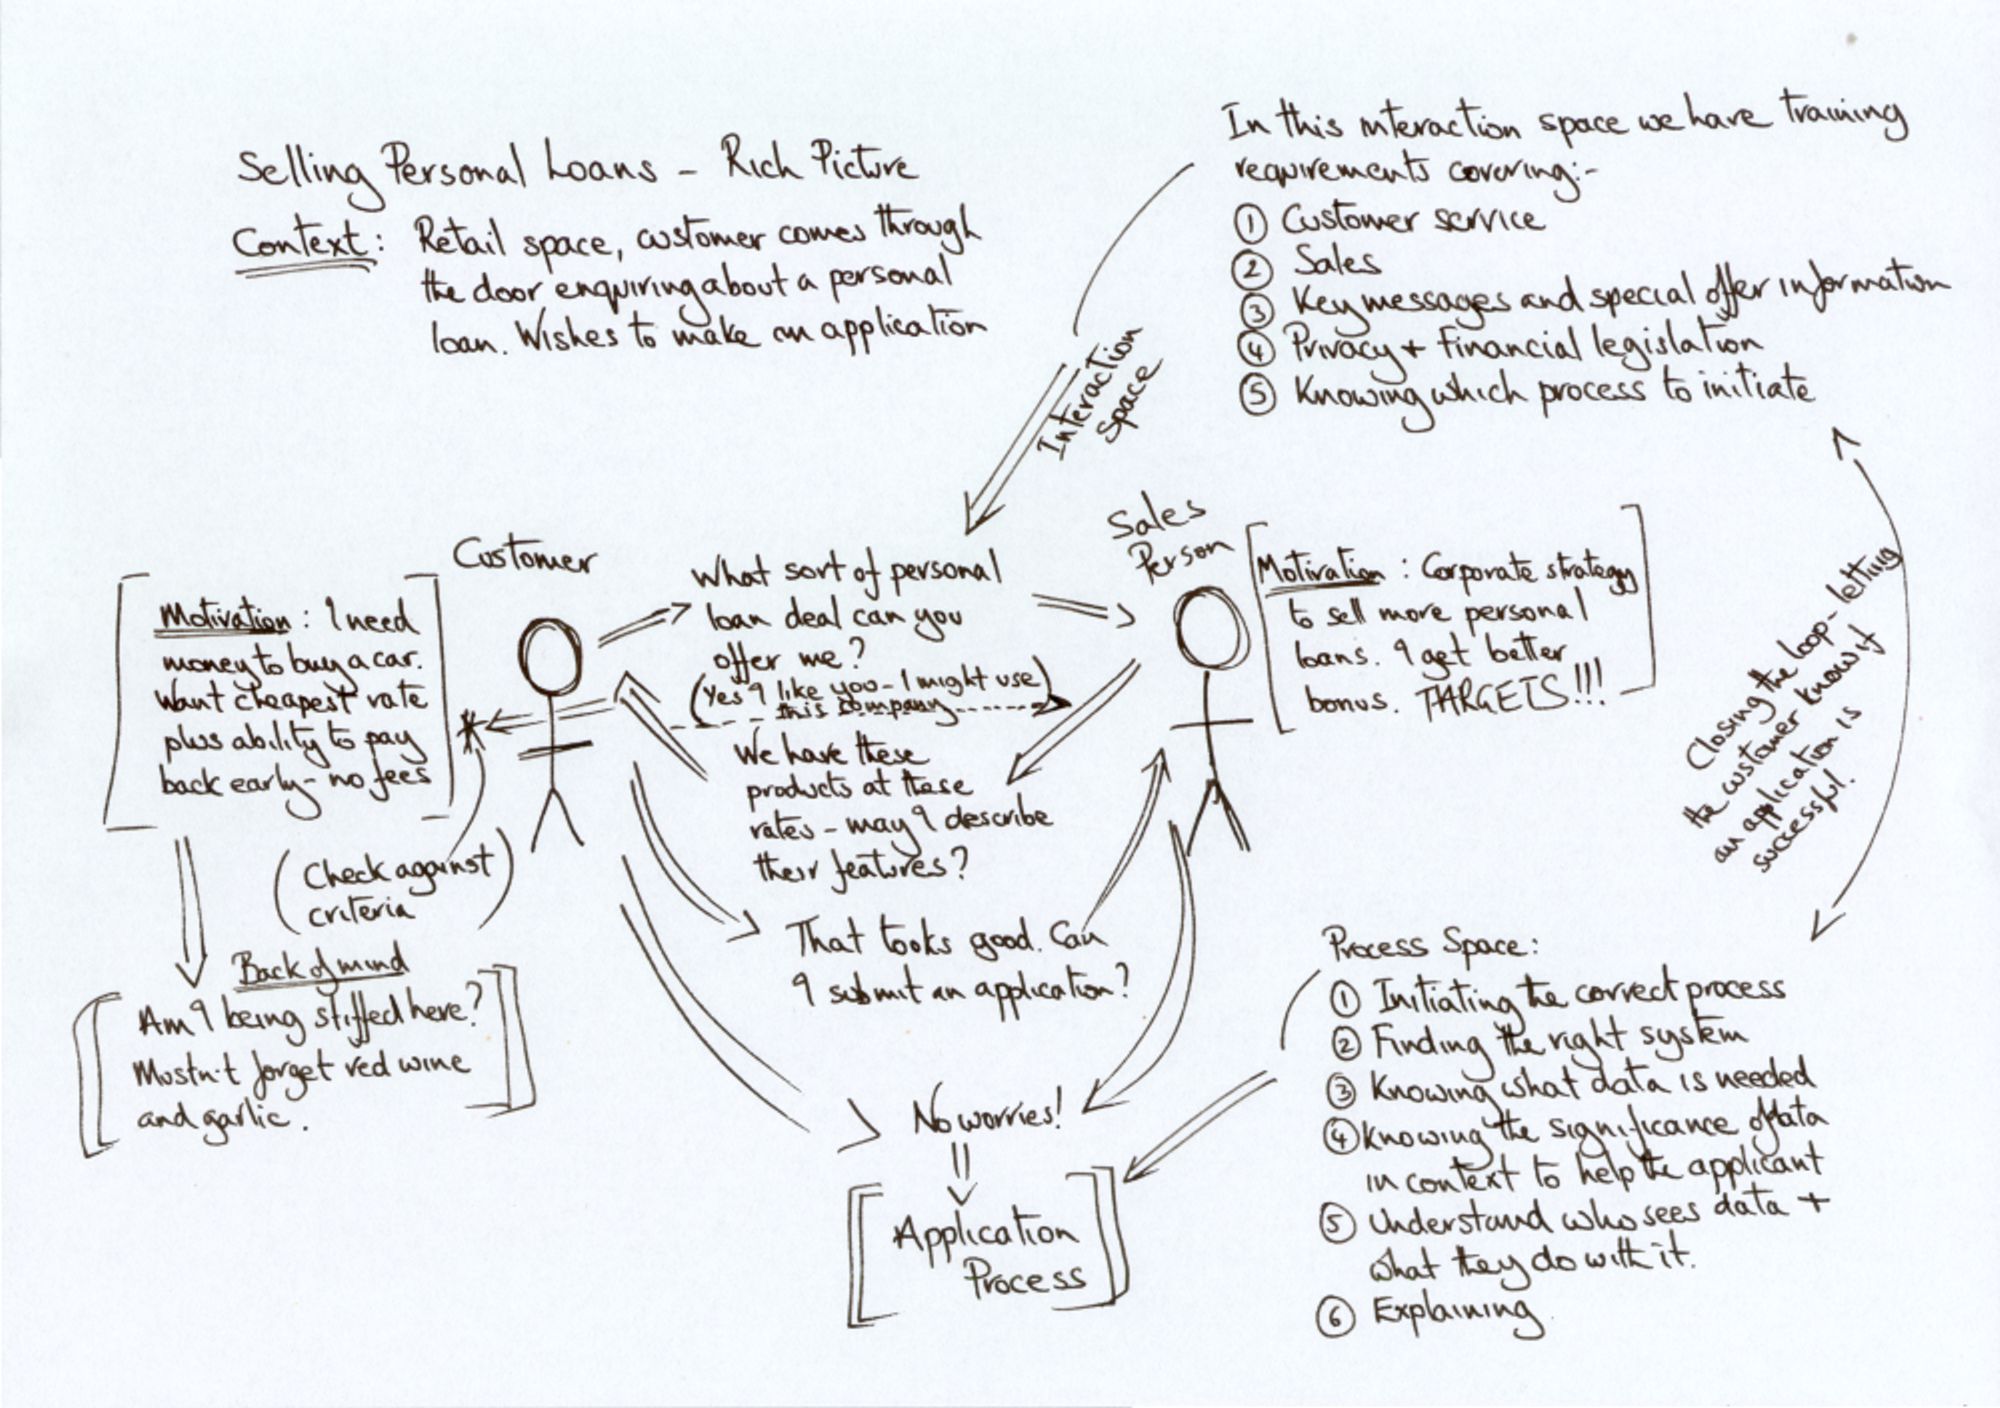 Selling Personal Loans - Rich Picture
Context: Retail space, customer comes through
the door enquiring about a personal
loan. Wishes to make an application
In this interaction space we have training
requirements covering:-
① Customer service
② Sales
③ Key messages and special offer information
④ Privacy + Financial legislation
⑤ Knowing which process to initiate
Interaction
Space
Customer
Motivation: I need
money to buy a car.
Want cheapest rate
plus ability to pay
back early - no fees
(Check against
criteria)
Back of mind
Am I being stiffed here?
Mustn't forget red wine
and garlic.
What sort of personal
loan deal can you
offer me?
(Yes I like you - I might use
this company)
We have these
products at these
rates - may I describe
their features?
That looks good. Can
I submit an application?
No worries!
Application
Process
Sales
Person
Motivation: Corporate strategy
to sell more personal
loans. I get better
bonus. TARGETS!!!
Closing the loop - letting
the customer know if
an application is
successful.
Process Space:
① Initiating the correct process
② Finding the right system
③ Knowing what data is needed
④ Knowing the significance of data
in context to help the applicant
⑤ Understand who sees data +
what they do with it.
⑥ Explaining